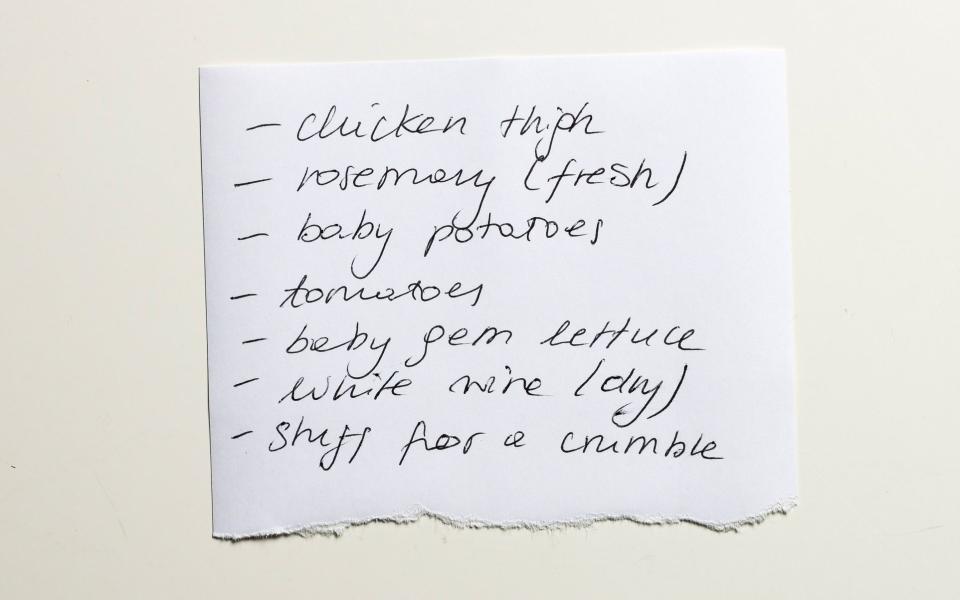 - chicken thigh
- rosemary (fresh)
- baby potatoes
- tomatoes
- baby gem lettuce
- white wine (dry)
- stuff for a crumble